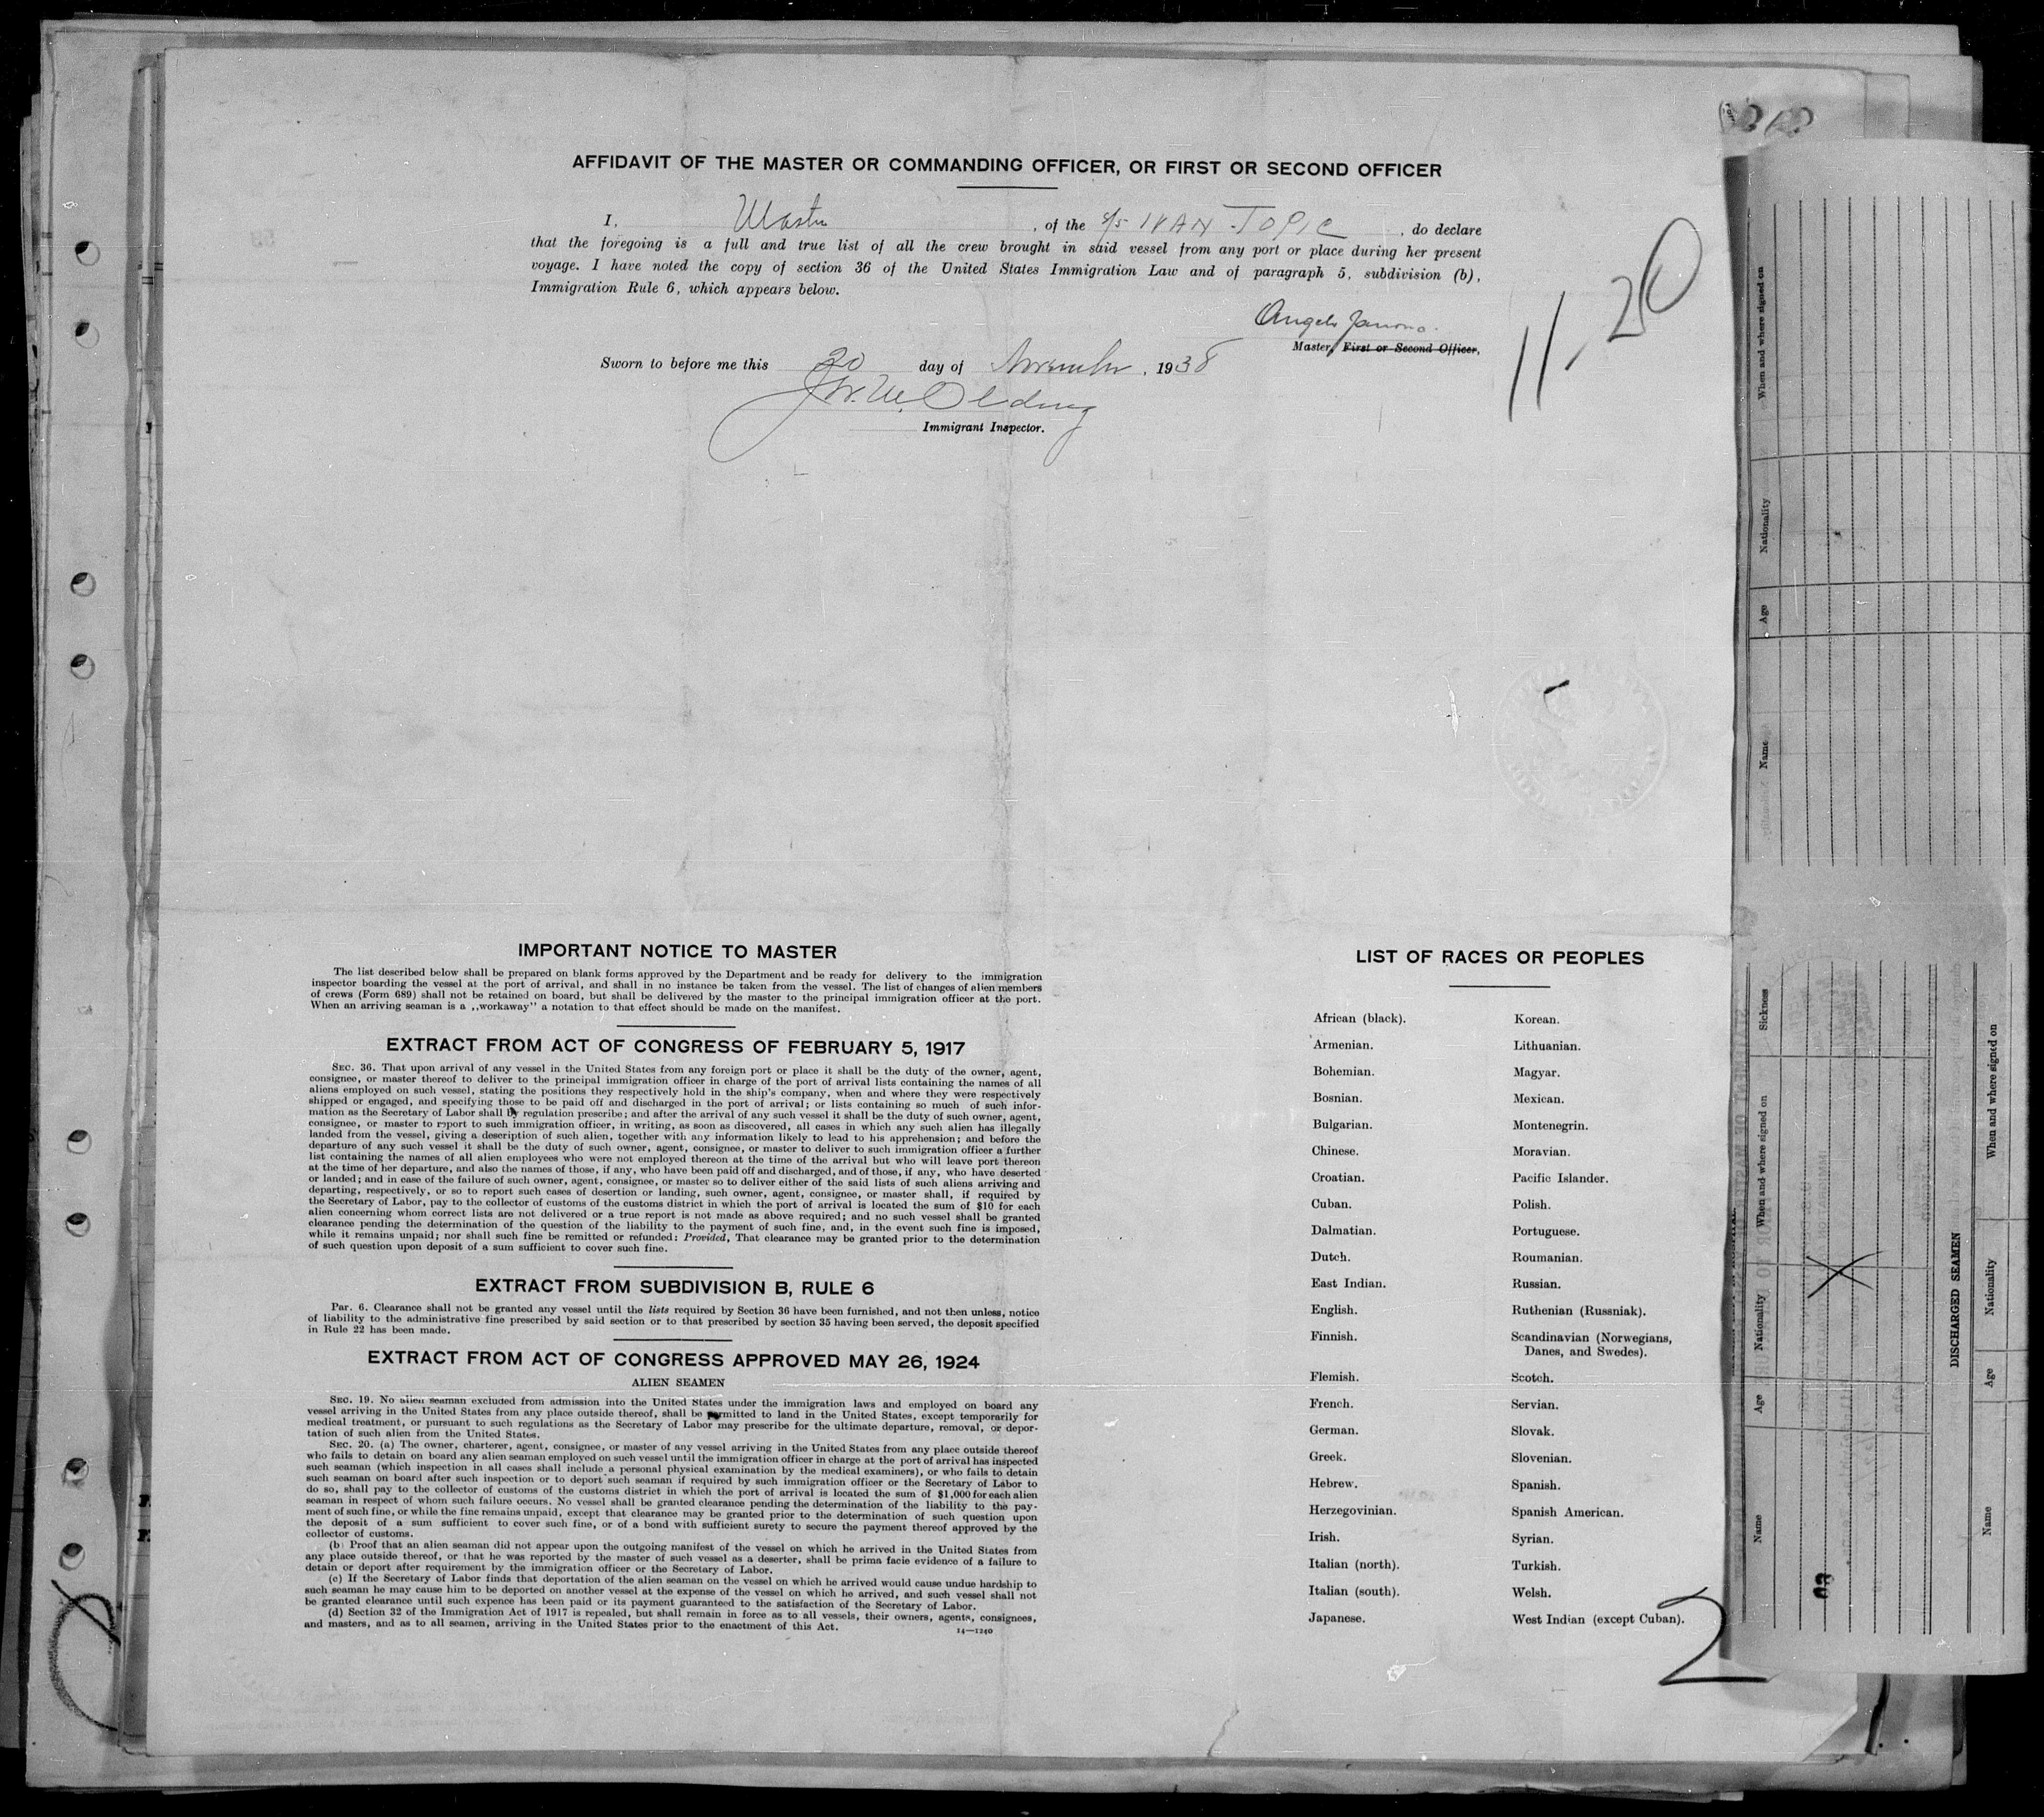 AFFIDAVIT OF THE MASTER OR COMMANDING OFFICER, OR FIRST OR SECOND OFFICER
I, Master, of the S/S IVAN TOPIC, do declare
that the foregoing is a full and true list of all the crew brought in said vessel from any port or place during her present
voyage. I have noted the copy of section 36 of the United States Immigration Law and of paragraph 5, subdivision (b),
Immigration Rule 6, which appears below.
Angelo
Master, First or Second Officer,
11.20
Sworn to before me this 20 day of November, 1938
Immigrant Inspector.
IMPORTANT NOTICE TO MASTER
The list described below shall be prepared on blank forms approved by the Department and be ready for delivery to the immigration
inspector boarding the vessel at the port of arrival, and shall in no instance be taken from the vessel. The list of changes of alien members
of crews (Form 689) shall not be retained on board, but shall be delivered by the master to the principal immigration officer at the port.
When an arriving seaman is a ,,workaway" a notation to that effect should be made on the manifest.
EXTRACT FROM ACT OF CONGRESS OF FEBRUARY 5, 1917
SEC. 36. That upon arrival of any vessel in the United States from any foreign port or place it shall be the duty of the owner, agent,
consignee, or master thereof to deliver to the principal immigration officer in charge of the port of arrival lists containing the names of all
aliens employed on such vessel, stating the positions they respectively hold in the ship's company, when and where they were respectively
shipped or engaged, and specifying those to be paid off and discharged in the port of arrival; or lists containing so much of such infor-
mation as the Secretary of Labor shall by regulation prescribe; and after the arrival of any such vessel it shall be the duty of such owner, agent,
consignee, or master to report to such immigration officer, in writing, as soon as discovered, all cases in which any such alien has illegally
landed from the vessel, giving a description of such alien, together with any information likely to lead to his apprehension; and before the
departure of any such vessel it shall be the duty of such owner, agent, consignee, or master to deliver to such immigration officer a further
list containing the names of all alien employees who were not employed thereon at the time of the arrival but who will leave port thereon
at the time of her departure, and also the names of those, if any, who have been paid off and discharged, and of those, if any, who have deserted
or landed; and in case of the failure of such owner, agent, consignee, or master so to deliver either of the said lists of such aliens arriving and
departing, respectively, or so to report such cases of desertion or landing, such owner, agent, consignee, or master shall, if required by
the Secretary of Labor, pay to the collector of customs of the customs district in which the port of arrival is located the sum of $10 for each
alien concerning whom correct lists are not delivered or a true report is not made as above required; and no such vessel shall be granted
clearance pending the determination of the question of the liability to the payment of such fine, and, in the event such fine is imposed,
while it remains unpaid; nor shall such fine be remitted or refunded: Provided, That clearance may be granted prior to the determination
of such question upon deposit of a sum sufficient to cover such fine.
EXTRACT FROM SUBDIVISION B, RULE 6
Par. 6. Clearance shall not be granted any vessel until the lists required by Section 36 have been furnished, and not then unless, notice
of liability to the administrative fine prescribed by said section or to that prescribed by section 35 having been served, the deposit specified
in Rule 22 has been made.
EXTRACT FROM ACT OF CONGRESS APPROVED MAY 26, 1924
ALIEN SEAMEN
SEC. 19. No alien seaman excluded from admission into the United States under the immigration laws and employed on board any
vessel arriving in the United States from any place outside thereof, shall be permitted to land in the United States, except temporarily for
medical treatment, or pursuant to such regulations as the Secretary of Labor may prescribe for the ultimate departure, removal, or depor-
tation of such alien from the United States.
SEC. 20. (a) The owner, charterer, agent, consignee, or master of any vessel arriving in the United States from any place outside thereof
who fails to detain on board any alien seaman employed on such vessel until the immigration officer in charge at the port of arrival has inspected
such seaman (which inspection in all cases shall include a personal physical examination by the medical examiners), or who fails to detain
such seaman on board after such inspection or to deport such seaman if required by such immigration officer or the Secretary of Labor to
do so, shall pay to the collector of customs of the customs district in which the port of arrival is located the sum of $1,000 for each alien
seaman in respect of whom such failure occurs. No vessel shall be granted clearance pending the determination of the liability to the pay-
ment of such fine, or while the fine remains unpaid, except that clearance may be granted prior to the determination of such question upon
the deposit of a sum sufficient to cover such fine, or of a bond with sufficient surety to secure the payment thereof approved by the
collector of customs.
(b) Proof that an alien seaman did not appear upon the outgoing manifest of the vessel on which he arrived in the United States from
any place outside thereof, or that he was reported by the master of such vessel as a deserter, shall be prima facie evidence of a failure to
detain or deport after requirement by the immigration officer or the Secretary of Labor.
(c) If the Secretary of Labor finds that deportation of the alien seaman on the vessel on which he arrived would cause undue hardship to
such seaman he may cause him to be deported on another vessel at the expense of the vessel on which he arrived, and such vessel shall not
be granted clearance until such expence has been paid or its payment guaranteed to the satisfaction of the Secretary of Labor.
(d) Section 32 of the Immigration Act of 1917 is repealed, but shall remain in force as to all vessels, their owners, agents, consignees,
and masters, and as to all seamen, arriving in the United States prior to the enactment of this Act.
14—1240
LIST OF RACES OR PEOPLES
African (black).
Armenian.
Bohemian.
Bosnian.
Bulgarian.
Chinese.
Croatian.
Cuban.
Dalmatian.
Dutch.
East Indian.
English.
Finnish.
Flemish.
French.
German.
Greek.
Hebrew.
Herzegovinian.
Irish.
Italian (north).
Italian (south).
Japanese.
Korean.
Lithuanian.
Magyar.
Mexican.
Montenegrin.
Moravian.
Pacific Islander.
Polish.
Portuguese.
Roumanian.
Russian.
Ruthenian (Russniak).
Scandinavian (Norwegians,
Danes, and Swedes).
Scotch.
Servian.
Slovak.
Slovenian.
Spanish.
Spanish American.
Syrian.
Turkish.
Welsh.
West Indian (except Cuban).
2
Name Age Nationality When and where signed on
Name Age Nationality When and where signed on Sickness
DISCHARGED SEAMEN
Name Age Nationality When and where signed on